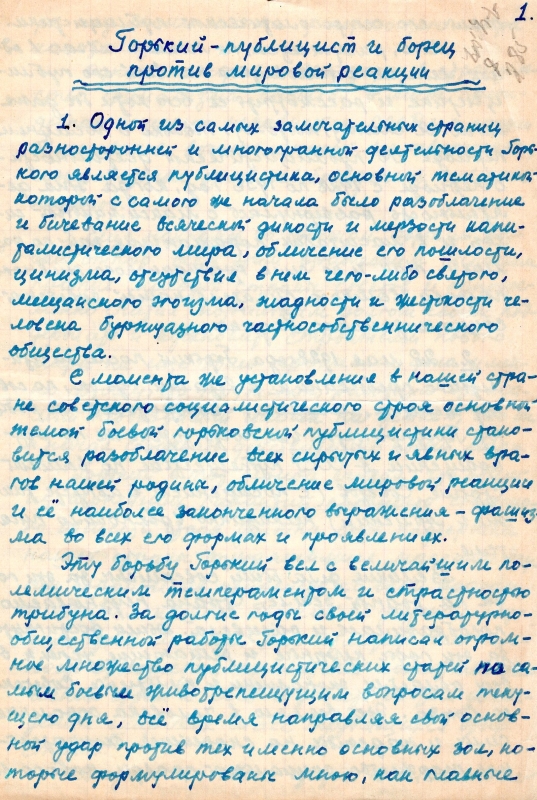 1.
Горький - публицист и борец
против мировой реакции
1. Одной из самых замечательных страниц
разносторонней и многогранной деятельности Горь-
кого является публицистика, основной тематикой
которой с самого же начала было разоблачение
и бичевание всяческой дикости и мерзости капи-
талистического мира, обличение его пошлости,
цинизма, отсутствие в нем чего-либо святого,
мещанского эгоизма, жадности и жестокости че-
ловека буржуазного частнособственнического
общества.
С момента же установления в нашей стра-
не советского социалистического строя основной
темой боевой горьковской публицистики стано-
вится разоблачение всех скрытых и явных вра-
гов нашей родины, обличение мировой реакции
и её наиболее законченного выражения - фашиз
ма во всех его формах и проявлениях.
Эту борьбу Горький вел с величайшим по-
лемическим темпераментом и страстностью
трибуна. За долгие годы своей литературно-
общественной работы Горький написал огром-
ное множество публицистических статей по са-
мым боевым животрепещущим вопросам теку-
щего дня, всё время направляя свой основ-
ной удар против тех именно основных зол, ко-
торые формулированы мною, как главные